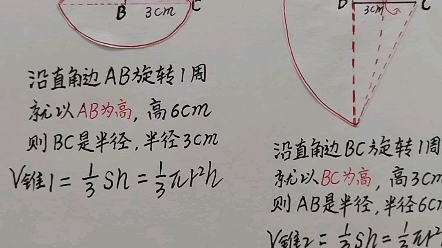 B 3cm C
沿直角边AB旋转1周
就以AB为高,高6cm
则BC是半径,半径3cm
V锥1=1/3Sh=1/3πr²h
B 3cm C
沿直角边BC旋转1周
就以BC为高,高3cm
则AB是半径,半径6cm
V锥2=1/3Sh=1/3πr²